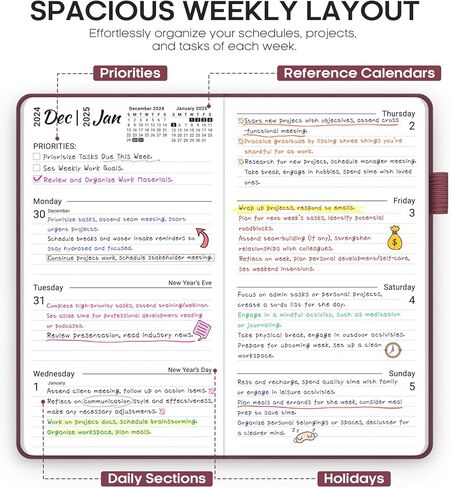 SPACIOUS WEEKLY LAYOUT
Effortlessly organize your schedules, projects,
and tasks of each week.
Priorities
Reference Calendars
2024 Dec | 2025 Jan
December 2024
January 2025
PRIORITIES:
Prioritize Tasks Due This Week.
Set Weekly Work Goals.
Review and Organize Work Materials.
Monday
30 December
Prioritize tasks, attend team meeting, start
urgent projects.
Schedule breaks and water intake reminders to
stay hydrated and focused.
Continue project work, schedule stakeholder meeting.
Tuesday
New Year's Eve
31
Complete high-priority tasks, attend training/webinar.
Set aside time for professional development reading
or podcasts.
Review presentation, read industry news.
Wednesday
New Year's Day
1 January
Attend client meeting, follow up on action items.
Reflect on communication style and effectiveness,
make any necessary adjustments.
Work on project docs, schedule brainstorming.
Organize workspace, plan meals.
Thursday
2
Start new project with objectives, attend cross
-functional meeting.
Practice gratitude by listing three things you're
thankful for at work.
Research for new project, schedule manager meeting.
Take break, engage in hobbies, spend time with loved
ones.
Friday
3
Wrap up projects, respond to emails.
Plan for next week's tasks, identify potential
roadblocks.
Attend team-building (if any), strengthen
relationships with colleagues.
Reflect on week, plan personal development/self-care.
Set weekend intentions.
Saturday
4
Focus on admin tasks or personal projects,
create a to-do list for the day.
Engage in a mindful activity, such as meditation
or journaling.
Take physical break, engage in outdoor activities.
Prepare for upcoming week, set up a clean
workspace.
Sunday
5
Rest and recharge, spend quality time with family
or engage in leisure activities.
Plan meals and errands for the week, consider meal
prep to save time.
Organize personal belongings or spaces, declutter for
a clearer mind.
Daily Sections
Holidays